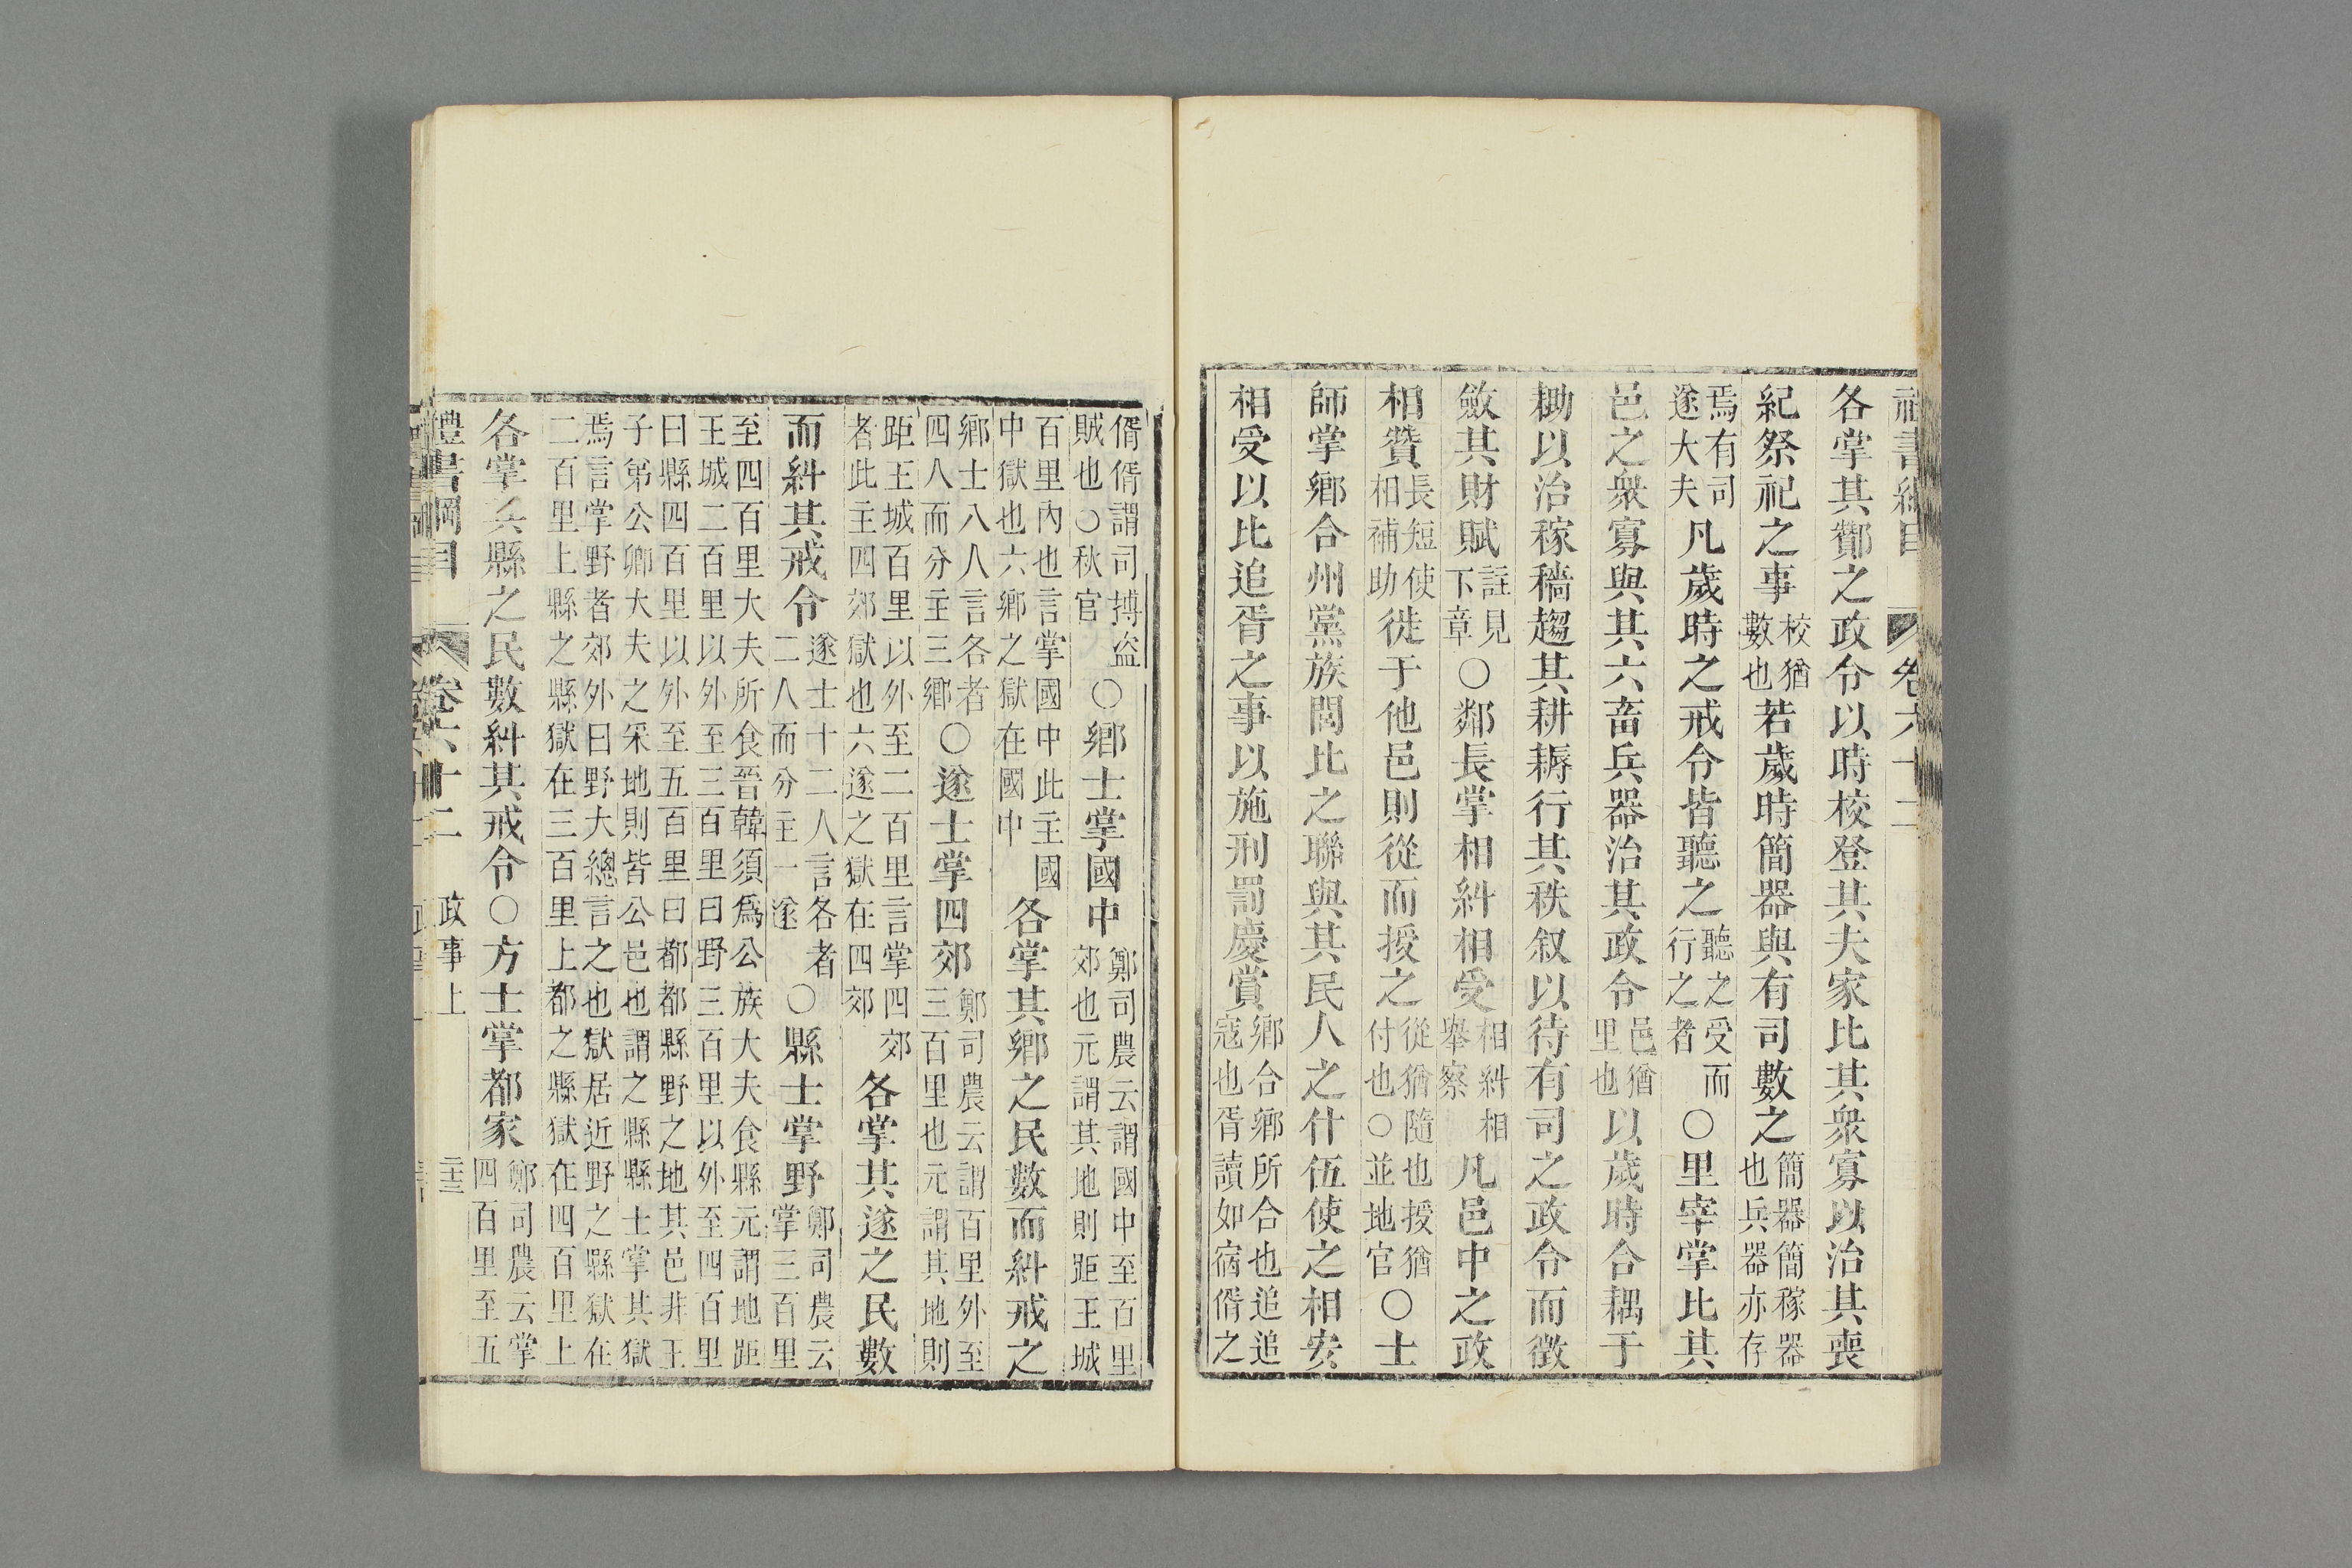 各掌其酇之政令以時校登其夫家比其衆寡以治其喪
紀祭祀之事校猶數也若歲時簡器與有司數之簡器簡稼器也兵器亦存
焉有司遂大夫凡歲時之戒令皆聽之聽之受而行之者○里宰掌比其
邑之衆寡與其六畜兵器治其政令邑猶里也以歲時合耦于
耡以治稼穡趨其耕耨行其秩叙以待有司之政令而徵
斂其財賦註見下章○鄰長掌相糾相受相糾相舉察凡邑中之政
相贊長短使相補助徙于他邑則從而授之從猶隨也授猶付也○並地官○士
師掌鄉合州黨族閭比之聯與其民人之什伍使之相安
相受以比追胥之事以施刑罰慶賞鄉合鄉所合也追追寇也胥讀如宿偦之
偦偦謂司搏盜賊也○秋官○鄉士掌國中鄭司農云謂國中至百里郊也元謂其地則距王城
百里內也言掌國中此主國中獄也六鄉之獄在國中各掌其鄉之民數而糾戒之
鄉士八人言各者四八而分主三鄉○遂士掌四郊鄭司農云謂百里外至三百里也元謂其地則
距王城百里以外至二百里言掌四郊者此主四郊獄也六遂之獄在四郊各掌其遂之民數
而糾其戒令遂士十二人言各者二八而分主一遂○縣士掌野鄭司農云掌三百里
至四百里大夫所食晉韓須爲公族大夫食縣元謂地距王城二百里以外至三百里曰野三百里以外至四百里
曰縣四百里以外至五百里曰都都縣野之地其邑非王子弟公卿大夫之采地則皆公邑也謂之縣縣士掌其獄
焉言掌野者郊外曰野大總言之也獄居近野之縣獄在二百里上縣之縣獄在三百里上都之縣獄在四百里上
各掌其縣之民數糾其戒令○方士掌都家鄭司農云掌四百里至五
禮書綱目　卷六十二　政事上